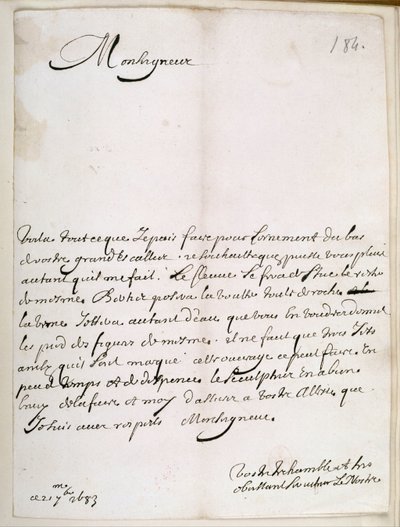 184.
Monseigneur
Voila tout ce que Je puis faire pour Lornement du bas
de vostre grand Escallier . Je souhaitte quil puisse vous plaire
autant quil me fait . Le fleuve Se fera de Stuc le reste
de mesme . Rocher posera la voulte
la Tettera autant d'eau que vous En voudrez donner
les pied des figures de mesme . il ne faut que
quil soit marqué cest ouvrage ce peut faire En
peu de temps et de despence le sculpteur En a bien
Envie de la faire et moy d'assurer a vostre Altesse que
Je suis avec respects Monseigneur
Vostre tres humble et tres
obeissant Serviteur Le Nostre
ce 21 7bre 1683